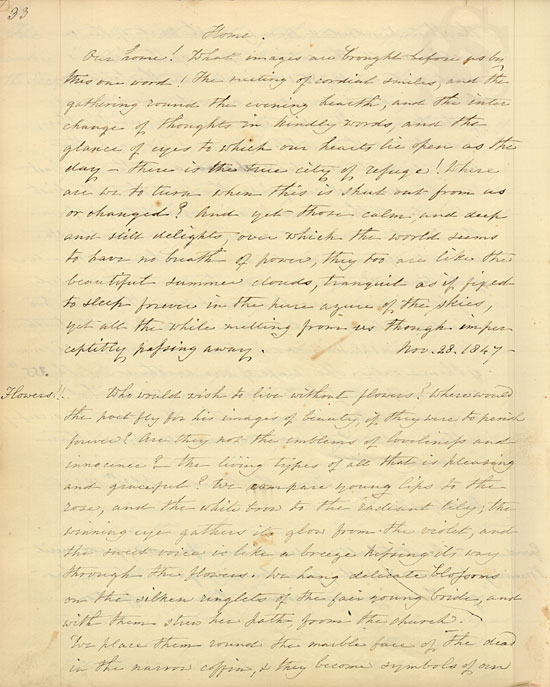 33
Home.
Our home! What images are brought before us by
this one word! The meeting of cordial smiles, and the
gathering round the evening hearth, and the inter
change of thoughts in kindly words, and the
glance of eyes to which our hearts lie open as the
day – there is the true city of refuge! Where
are we to turn when this is shut out from us
or changed? And yet those calm and deep
and still delights, over which the world seems
to have no breath of power, they too are like the
beautiful summer clouds, tranquil as if fixed
to sleep forever in the pure azure of the skies,
yet all the while melting from us though imper
ceptibly passing away. Nov. 28. 1847 –
Flowers!! Who would wish to live without flowers? Where would
the poet fly for his images of beauty, if they were to perish
forever? Are they not the emblems of loveliness and
innocence? – the living types of all that is pleasing
and graceful? We compare young lips to the
rose, and the white brow to the radiant lily; the
winning eye gathers its glow from the violet, and
the sweet voice is like a breeze kissing its way
through the flowers. We hang delicate blossoms
on the silken ringlets of the fair young bride, and
with them strew her path from the church.
We place them round the marble face of the dead
in the narrow coffin, & they become symbols of our